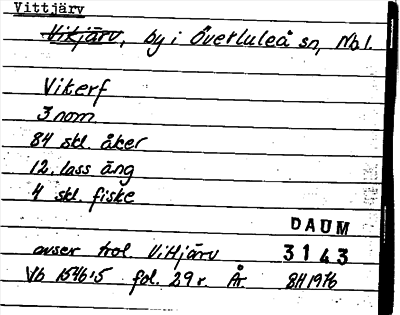 Vittjärv
Vikjärv, by i Överluleå sn, Nbl.
Vikerf
3 nom
84 skl. åker
12. lass äng
4 skl. fiske
DAUM
avser trol. Vittjärv 3143
Vb 1546:5 fol. 29 r. År BH 1976